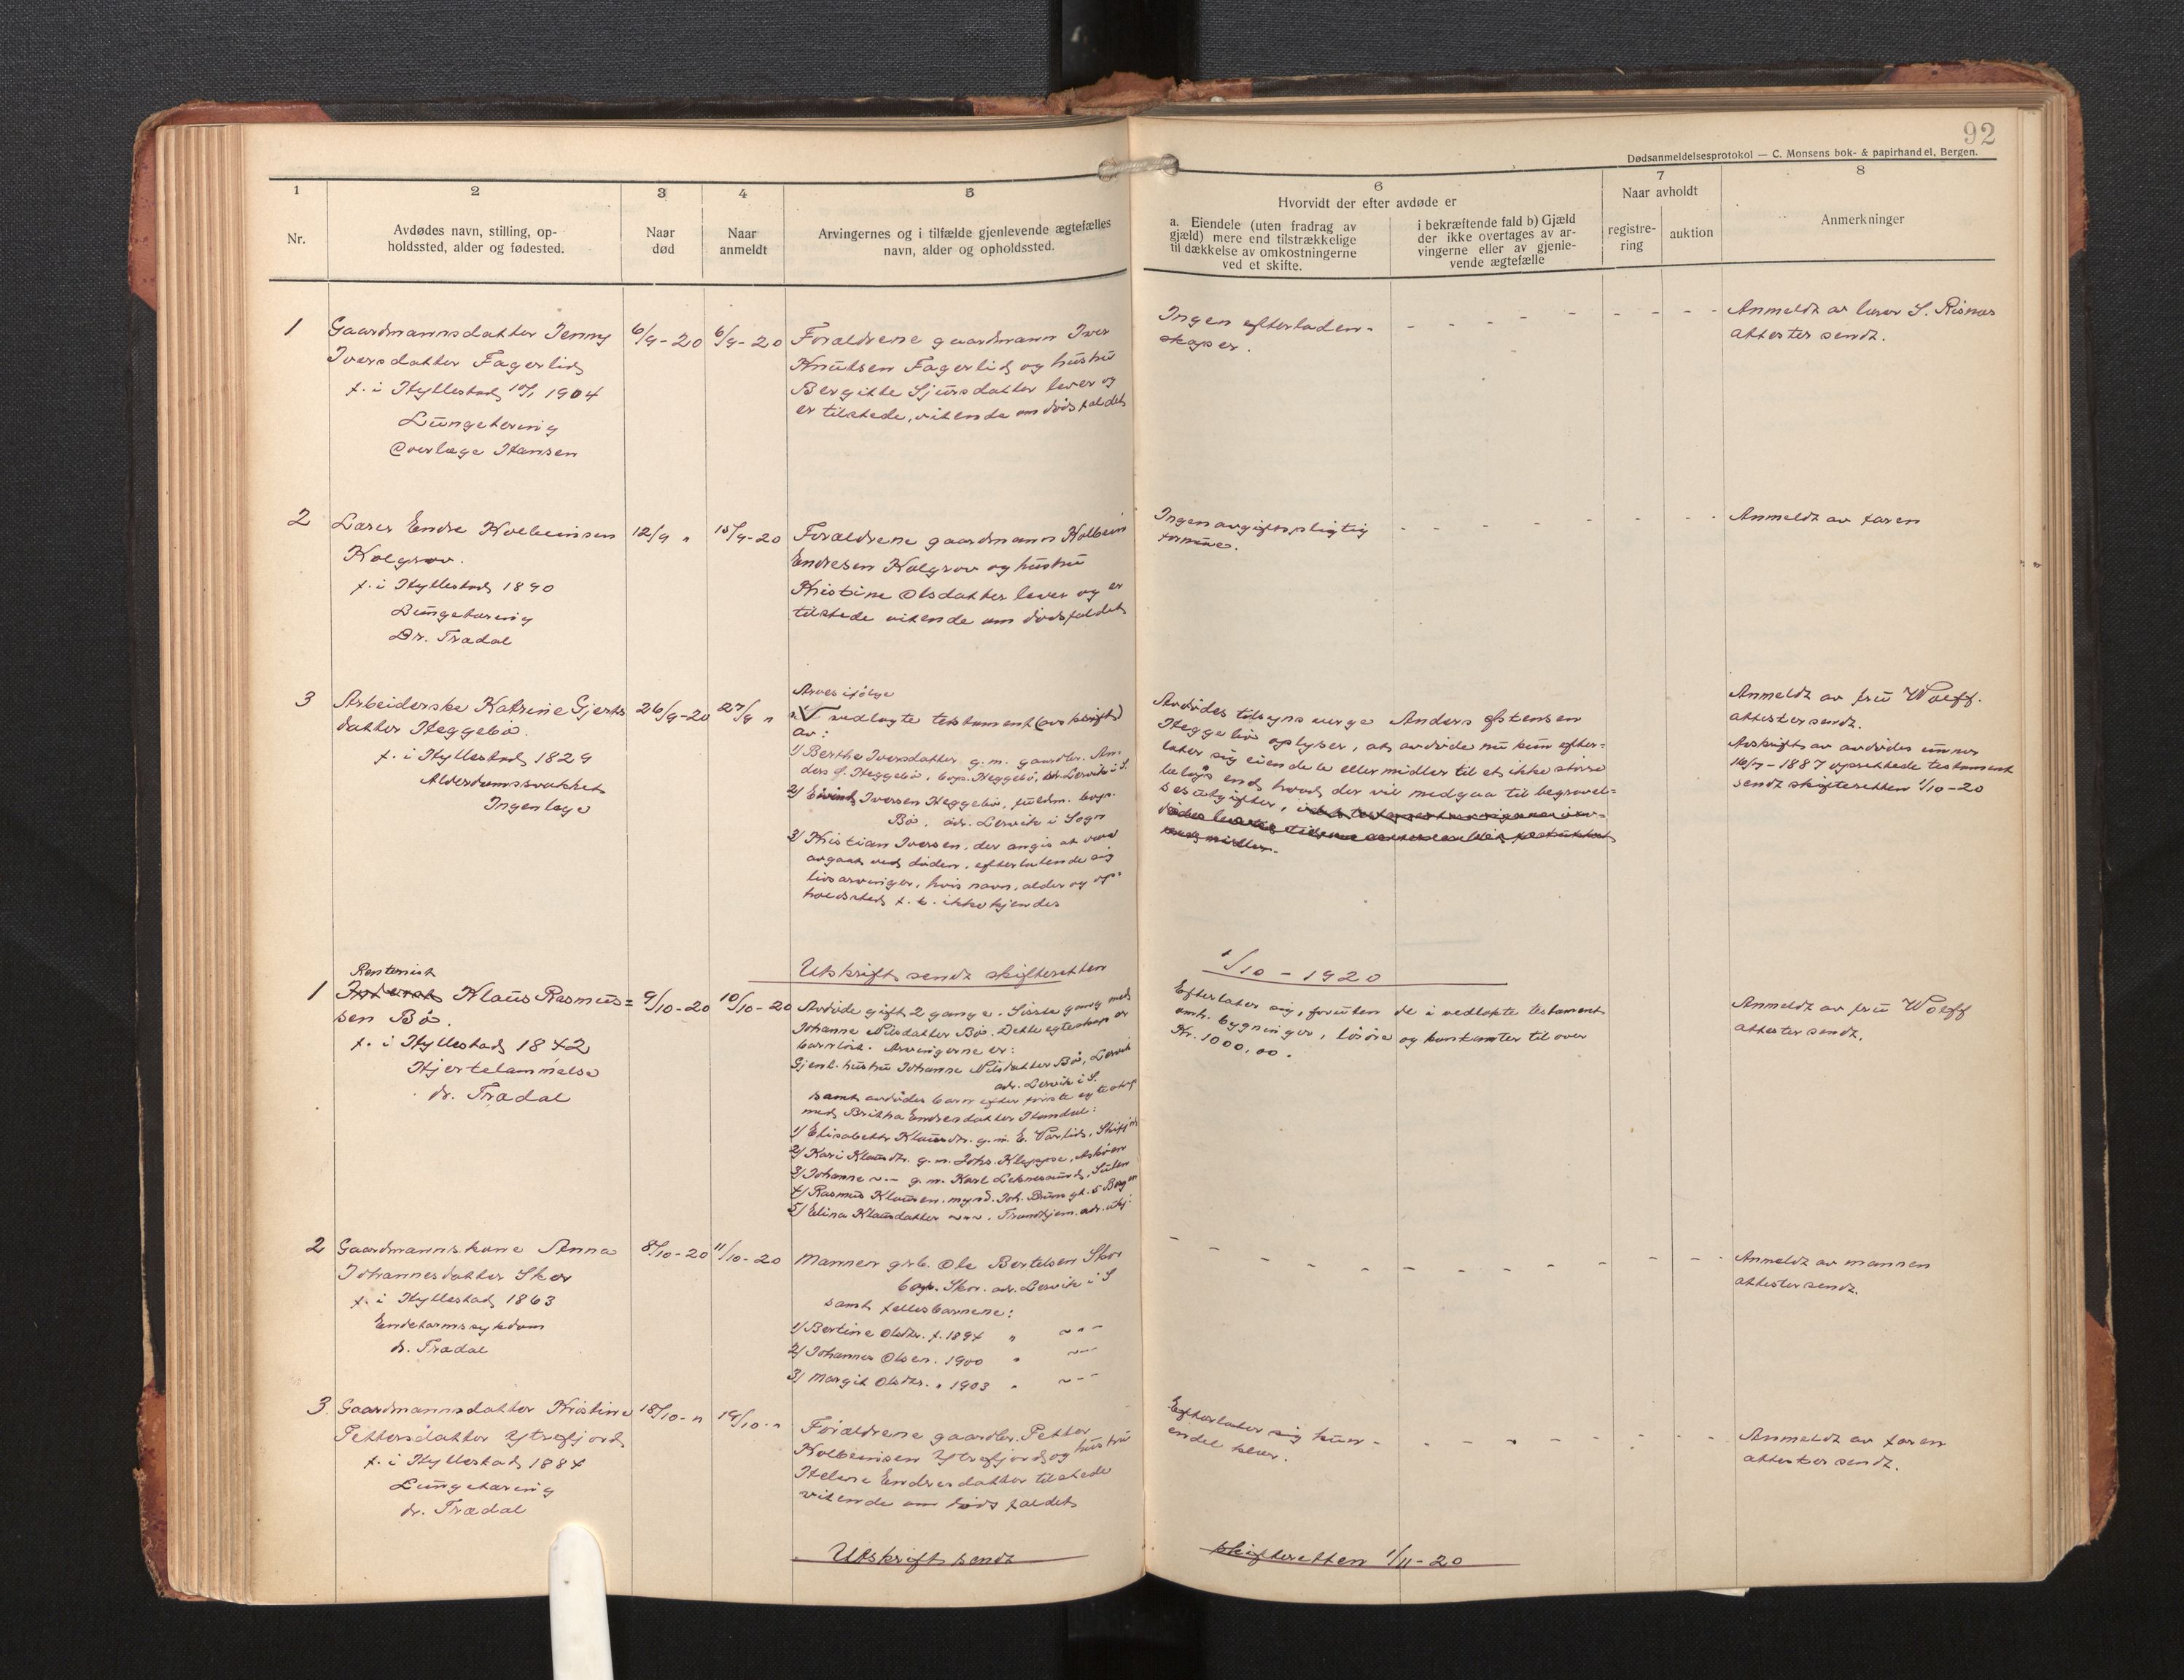 92
Dødsanmeldelsesprotokol — C. Monsens bok- & papirhandel, Bergen.
1
Nr.
2
Avdødes navn, stilling, op-
holdssted, alder og fødested.
3
Naar
død
4
Naar
anmeldt
5
Arvingernes og i tilfælde gjenlevende ægtefælles
navn, alder og opholdssted.
6
Hvorvidt der efter avdøde er
a. Eiendele (uten fradrag av
gjæld) mere end tilstrækkelige
til dækkelse av omkostningerne
ved et skifte.
i bekræftende fald b) Gjæld
der ikke overtages av ar-
vingerne eller av gjenle-
vende ægtefælle
7
Naar avholdt
registre-
ring
auktion
8
Anmerkninger
1
Gaardmannsdatter Jenny
Iversdatter Fagerlid
f. i Hyllestad 10/1 1904
Lungetæring
Overlæge Hansen
6/9-20
6/9-20
Forældrene gaardmann Iver
Knutsen Fagerlid og hustru
Bergitte Sjursdatter lever og
er tilstede, vitende om dødsfaldet
Ingen efterladen-
skaper.
Anmeldt av lærer S. Risnes
attester sendt.
2
Lærer Endre Kolbeinsen
Kolgrov.
f. i Hyllestad 1890
Lungetæring
Dr. Trædal
12/9 "
15/9-20
Forældrene gaardmann Kolbein
Endresen Kolgrov og hustru
Kristine Olsdatter lever og er
tilstede vitende om dødsfaldet
Ingen avgiftspligtig
formue.
Anmeldt av faren
3
Arbeiderske Katrine Gjerts
datter Heggebø.
f. i Hyllestad 1829
Alderdomssvakhet
Ingen læge
26/9-20
27/9 "
Arves ifølge
vedlagte testament (avskrift)
av:
1) Berthe Iversdatter g. m. gaardbr. An-
ders Ø. Heggebø, bop. Heggebø, adr. Lervik i S.
2) Eivind Iversen Heggebø, fuldm. bop.
Bø. adr. Lervik i Sogn
3) Kristian Iversen, der angis at være
avgaat ved døden, efterlatende sig
livsarvinger, hvis navn, alder og op-
holdssted f. t. ikke kjendes
Avdødes tilsyns verge Anders Østensen
Heggebø oplyser, at avdøde nu kun efter-
later sig eiendele eller midler til et ikke større
beløp end hvad der vil medgaa til begravel-
sesutgifter,
Anmeldt av fru Wolff.
attester sendt.
Avskrift av avdødes under
16/7-1887 oprettede testament
sendt skifteretten 1/10-20
Utskrift sendt skifteretten
1/10 - 1920
1
Rentenist
Klaus Rasmus=
sen Bø.
f. i Hyllestad 1842
Hjertelammelse
dr. Trædal
9/10-20
10/10-20
Avdøde gift 2 gange. Sidste gang med
Johanne Nilsdatter Bø. Dette egteskap er
barnløst. Arvingerne er:
Gjenl. hustru Johanne Nilsdatter Bø, Lervik
adr. Lervik i S.
samt avdødes barn efter første egteskap
med Britha Endresdatter Hamdal:
1) Elisabeth Klausdtr. g. m. E. Varlid,
2) Kari Klausdtr. g. m. Johs. Kleppe, Askøen
3) Johanne " g. m. Karl Leknessund, Sulen
4) Rasmus Klausen. mynd. Joh. Bruns gt. 5 Bergen
5) Elina Klausdatter " . Trondhjem. adr. ukj.
Efterlater sig, foruten de i vedlakte testament
omh. bygninger, løsøre og kontanter til over
Kr. 1000,00.
Anmeldt av fru Wolff
attester sendt.
2
Gaardmannskone Anna
Johannesdatter Skor
f. i Hyllestad 1863
Endetarmssykdom
dr. Trædal
8/10-20
11/10-20
Mannen grb. Ole Bertelsen Skor
bop. Skor. adr. Lervik i S
samt fellesbarnene:
1) Bertine Olsdtr. f. 1894 " "
2) Johannes Olsen. 1900 " "
3) Margit Olsdtr. " 1903 " "
Anmeldt av mannen
attester sendt.
3
Gaardmannsdatter Kristine
Pettersdatter Ytrefjord
f. i Hyllestad 1884
Lungetæring
dr. Trædal
18/10 - "
19/10 - "
Forældrene gaardbr. Petter
Kolbeinsen Ytrefjord og hustru
Helene Endresdatter tilstede
vitende om dødsfaldet
Efterlater sig kun
endel klær.
Anmeldt av faren
attester sendt.
Utskrift sendt
skifteretten 1/11-20